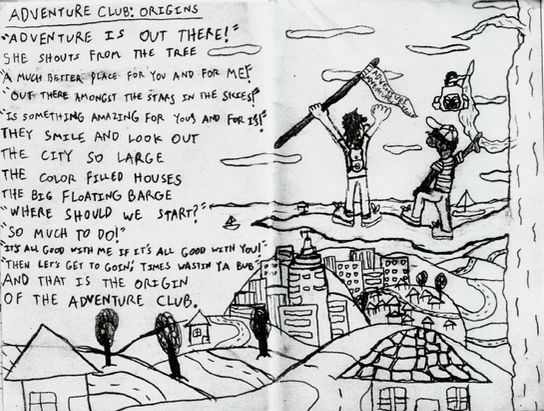 ADVENTURE CLUB: ORIGINS
"ADVENTURE IS OUT THERE!"
SHE SHOUTS FROM THE TREE
"A MUCH BETTER PLACE FOR YOU AND FOR ME!"
"OUT THERE AMONGST THE STARS IN THE SKIES!"
"IS SOMETHING AMAZING FOR YOUS AND FOR I'S!"
THEY SMILE AND LOOK OUT
THE CITY SO LARGE
THE COLOR FILLED HOUSES
THE BIG FLOATING BARGE
"WHERE SHOULD WE START?"
"SO MUCH TO DO!"
"IT'S ALL GOOD WITH ME IF IT'S ALL GOOD WITH YOU!"
"THEN LET'S GET TO GOIN', TIMES WASTIN YA BUB"
AND THAT IS THE ORIGIN
OF THE ADVENTURE CLUB.
ADVENTURE